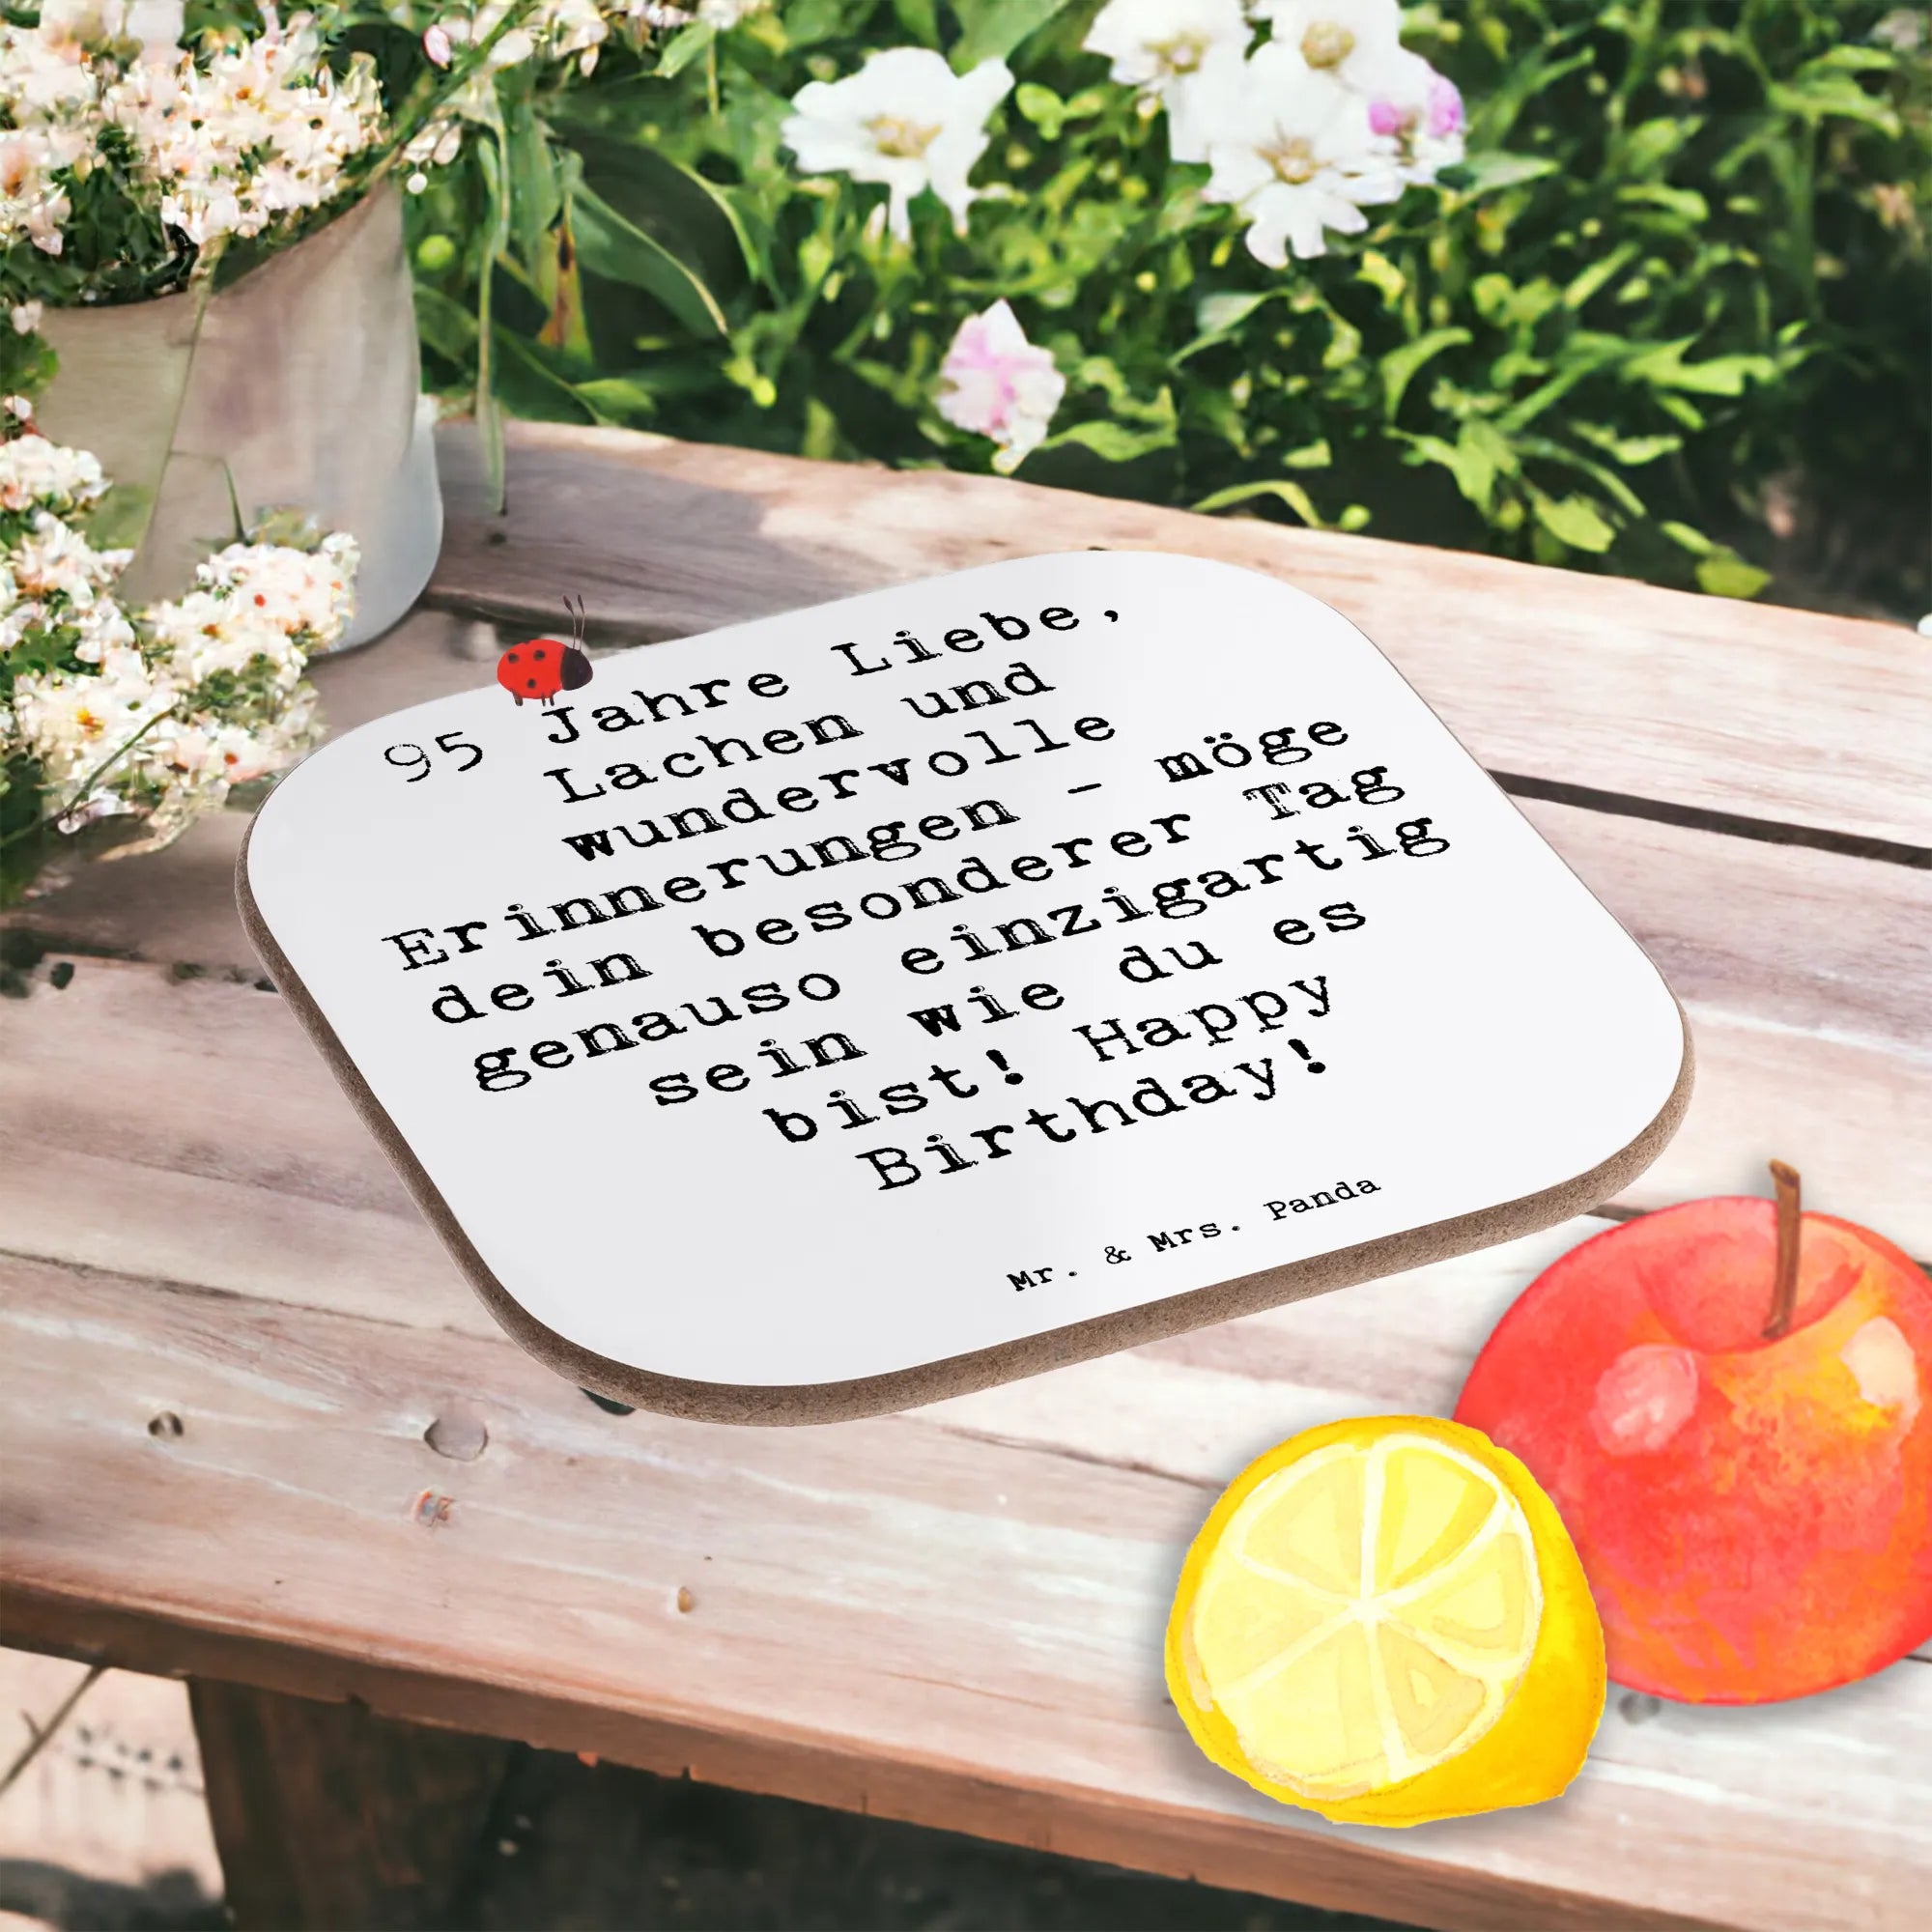 95 Jahre Liebe,
Lachen und
wundervolle
Erinnerungen - möge
dein besonderer Tag
genauso einzigartig
sein wie du es
bist! Happy
Birthday!
Mr. & Mrs. Panda